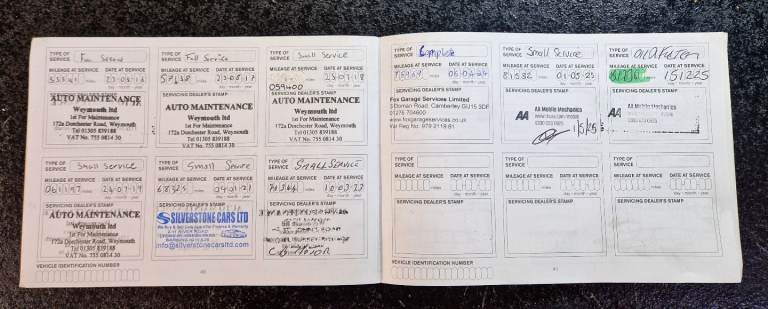 TYPE OF SERVICE Full Service
MILEAGE AT SERVICE DATE AT SERVICE
miles 23-08-16
day - month - year
SERVICING DEALER'S STAMP
AUTO MAINTENANCE
Weymouth ltd
1st For Maintenance
172a Dorchester Road, Weymouth
Tel 01305 839188
VAT No. 755 0814 30
TYPE OF SERVICE Full Service
MILEAGE AT SERVICE DATE AT SERVICE
miles 23-08-17
day - month - year
SERVICING DEALER'S STAMP
AUTO MAINTENANCE
Weymouth ltd
1st For Maintenance
172a Dorchester Road, Weymouth
Tel 01305 839188
VAT No. 755 0814 30
TYPE OF SERVICE Small Service
MILEAGE AT SERVICE DATE AT SERVICE
059400 miles 23-07-18
day - month - year
SERVICING DEALER'S STAMP
AUTO MAINTENANCE
Weymouth ltd
1st For Maintenance
172a Dorchester Road, Weymouth
Tel 01305 839188
VAT No. 755 0814 30
TYPE OF SERVICE Small Service
MILEAGE AT SERVICE DATE AT SERVICE
061197 miles 24-07-19
day - month - year
SERVICING DEALER'S STAMP
AUTO MAINTENANCE
Weymouth ltd
1st For Maintenance
172a Dorchester Road, Weymouth
Tel 01305 839188
VAT No. 755 0814 30
TYPE OF SERVICE Small Service
MILEAGE AT SERVICE DATE AT SERVICE
68325 miles 09-01-21
day - month - year
SERVICING DEALER'S STAMP
SILVERSTONE CARS LTD
info@silverstonecarsltd.com
TYPE OF SERVICE SMALL SERVICE
MILEAGE AT SERVICE DATE AT SERVICE
miles 10-03-23
day - month - year
SERVICING DEALER'S STAMP
VEHICLE IDENTIFICATION NUMBER
40
TYPE OF SERVICE Complete
MILEAGE AT SERVICE DATE AT SERVICE
75969 miles 05-04-24
day - month - year
SERVICING DEALER'S STAMP
Fox Garage Services Limited
3 Doman Road, Camberley GU15 3DF
01276 704600
www.foxgarageservices.co.uk
Vat Reg No: 979 2119 81
TYPE OF SERVICE Small Service
MILEAGE AT SERVICE DATE AT SERVICE
81582 miles 01-05-25
day - month - year
SERVICING DEALER'S STAMP
AA AA Mobile Mechanics
1/5/25
TYPE OF SERVICE Oil & Filter
MILEAGE AT SERVICE DATE AT SERVICE
miles 151225
day - month - year
SERVICING DEALER'S STAMP
AA AA Mobile Mechanics
TYPE OF SERVICE
MILEAGE AT SERVICE DATE AT SERVICE
miles
day - month - year
SERVICING DEALER'S STAMP
TYPE OF SERVICE
MILEAGE AT SERVICE DATE AT SERVICE
miles
day - month - year
SERVICING DEALER'S STAMP
TYPE OF SERVICE
MILEAGE AT SERVICE DATE AT SERVICE
miles
day - month - year
SERVICING DEALER'S STAMP
VEHICLE IDENTIFICATION NUMBER
41